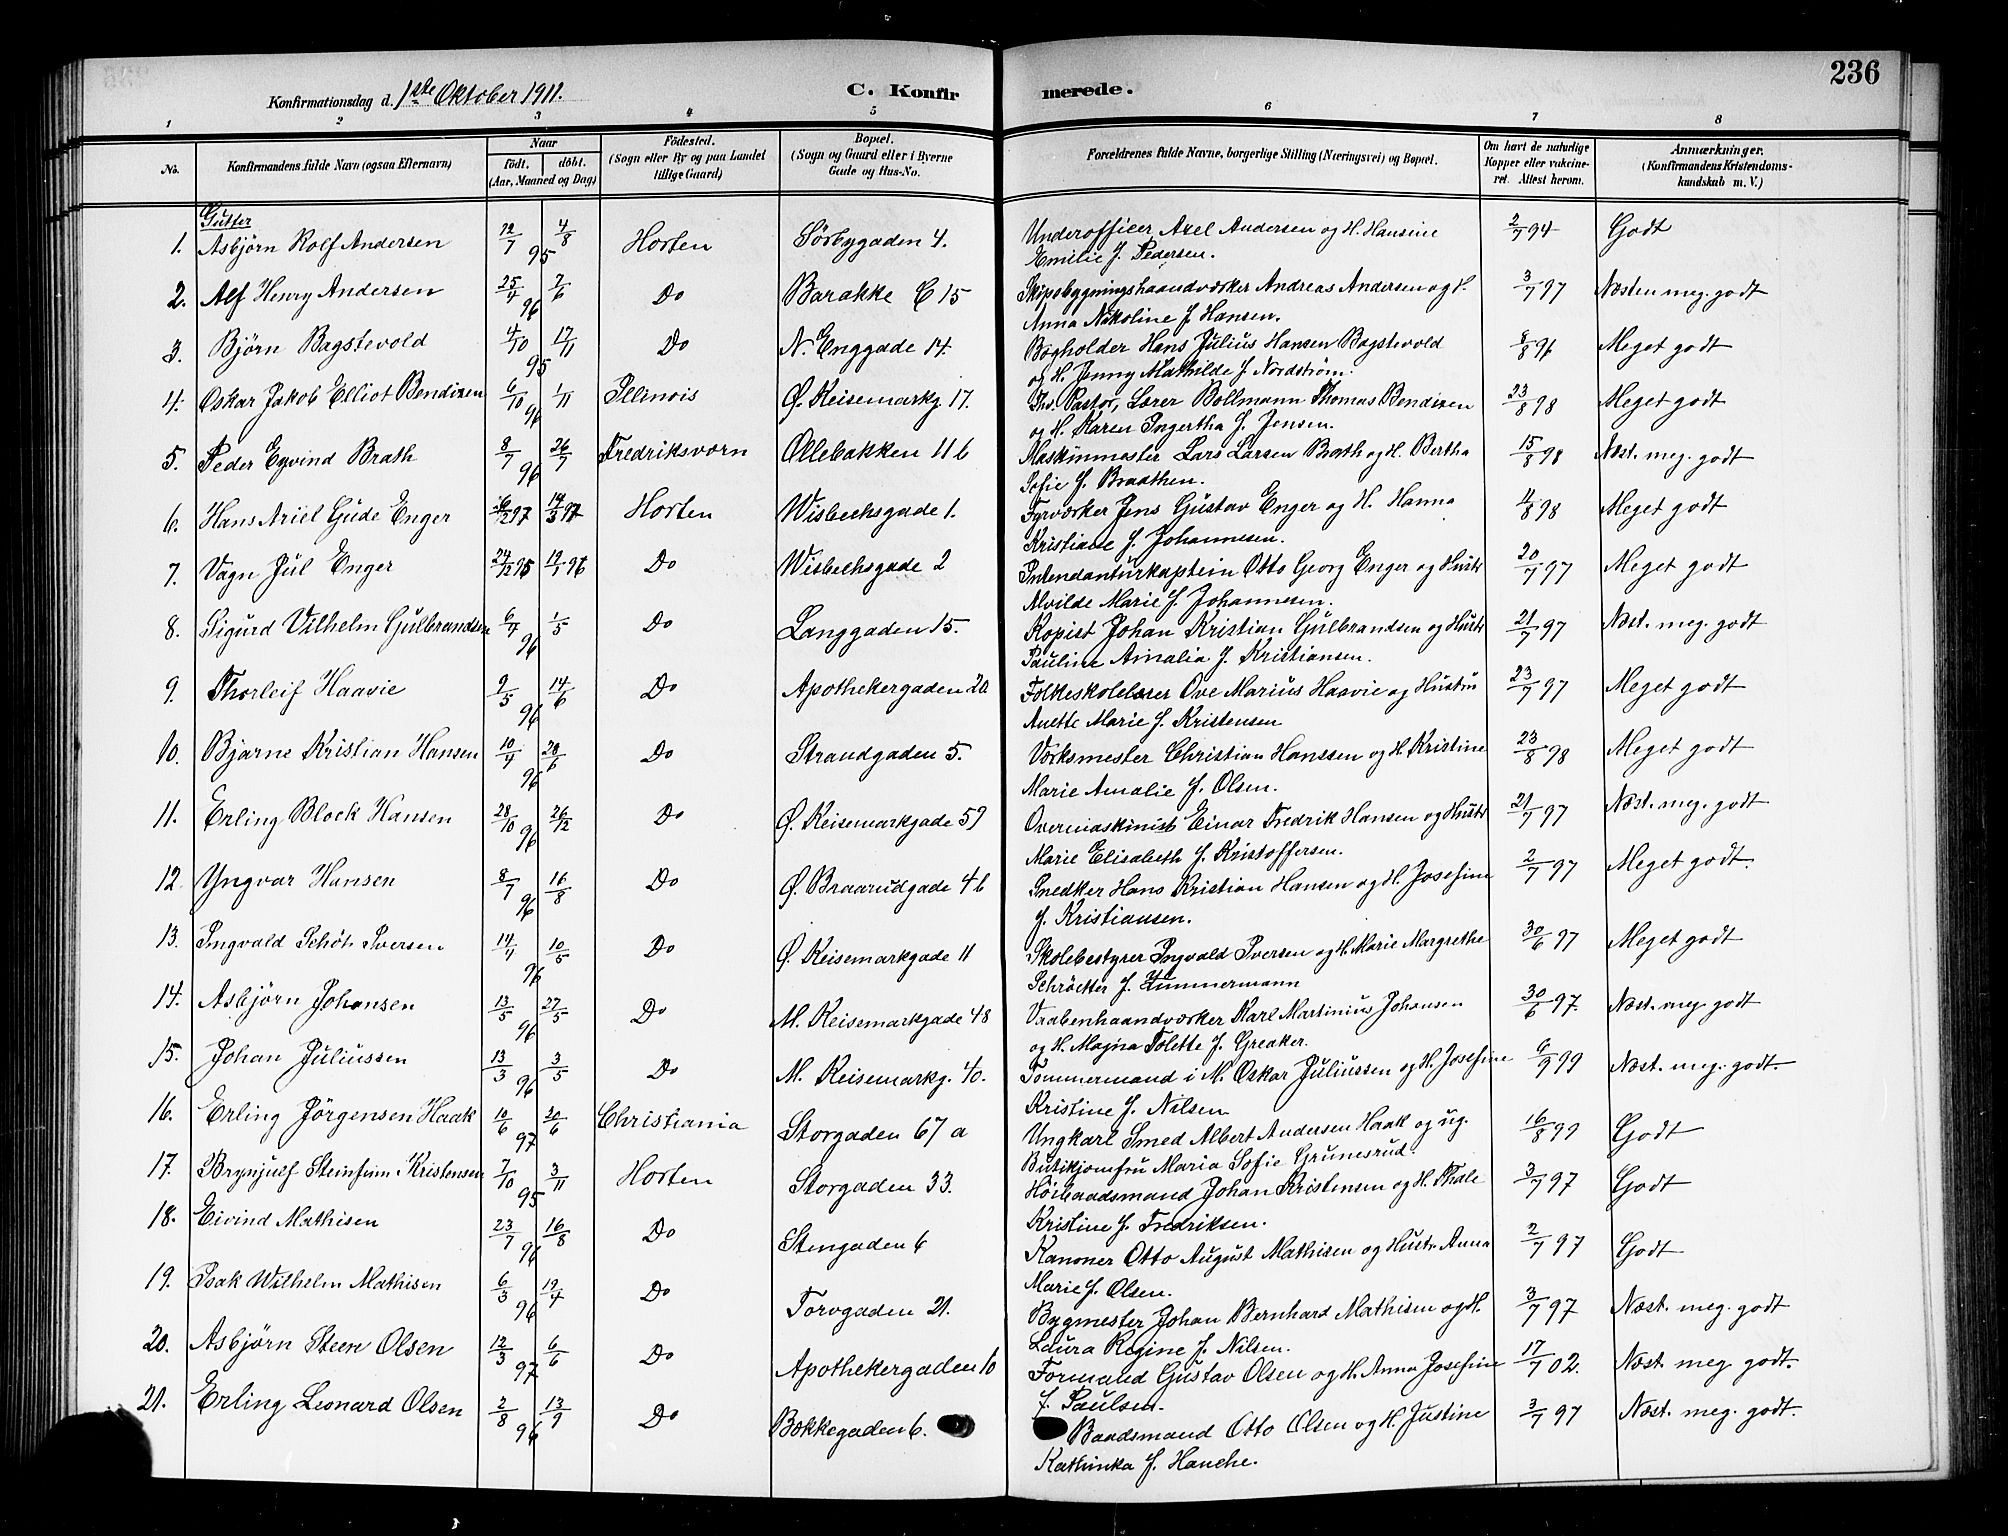 236
Konfirmationsdag d. 1ste Oktober 1911.
C. Konfir merede.
1 2 3 4 5 6 7 8
No. Konfirmandens fulde Navn (ogsaa Efternavn) Naar födt. döbt. (Aar, Maaned og Dag) Födested. (Sogn eller By og paa Landet tillige Gaard) Bopæl. (Sogn og Gaard eller i Byerne Gade og Hus-No. Forældrenes fulde Navne, borgerlige Stilling (Næringsvei) og Bopæl. Om havt de naturlige Kopper eller vakcineret. Attest herom. Anmærkninger. (Konfirmandens Kristendomskundskab m. V.)
Gutter
1. Asbjörn Rolf Andersen 12/7 95 4/8 Horten Sörbygaden 4. Underofficer Axel Andersen og H. Hansine 2/7 94 Godt
Emilie f. Pedersen.
2. Alf Henry Andersen 25/4 96 7/6 Do Barakke C 15 Skipsbygningshaandværker Andreas Andersen og H. 3/7 97 Næsten meg. godt
Anna Nikoline f. Hansen.
3. Björn Bagstevold 4/10 95 17/11 Do N. Enggade 14. Bogholder Hans Julius Hansen Bagstevold 8/8 96 Meget godt
og H. Jenny Mathilde f. Nordström.
4. Oskar Jakob Elliot Bendixen 6/10 96 1/11 Illinois Ø. Keisemarkg. 17. Ths. Pastor, Lærer Bollmann Thomas Bendixen 23/8 98 Meget godt
og H. Karen Ingertha f. Jensen.
5. Peder Eyvind Brath 8/7 96 26/7 Fredriksværn Ollebakken 11 b Maskinmester Lars Larsen Brath og H. Bertha 15/8 98 Næst. meg. godt
Sofie f. Braathen.
6. Hans Ariel Gude Enger /2 97 14/3 97 Horten Wisbechsgade 1. Fyrværker Jens Gustav Enger og H. Hanna 4/8 98 Meget godt
Kristiane f. Johannesen.
7. Vagn Jul Enger 24/12 95 12/1 96 Do Wisbechsgade 2 Intendanturkaptein Otto Georg Enger og Hustr 20/7 97 Meget godt
Alvilde Marie f. Johannesen.
8. Sigurd Vilhelm Gulbrandsen 6/4 96 1/5 Do Langgaden 15. Kopist Johan Kristian Gulbrandsen og Hustr 21/7 97 Næst. meg. godt
Pauline Amalia f. Kristiansen.
9. Thorleif Haavie 9/5 96 14/6 Do Apothekergaden 20 Folkeskolelærer Ove Marius Haavie og Hustru 23/7 97 Meget godt
Anette Marie f. Kristensen
10. Bjarne Kristian Hansen 10/4 96 28/6 Do Strandgaden 5. Værksmester Christian Hanssen og H. Kristine 23/8 98 Meget godt
Marie Amalie f. Olsen.
11. Erling Block Hansen 28/10 96 26/12 Do Ø. Keisemarkgade 57 Overmaskinist Einar Fredrik Hansen og Hustr 21/7 97 Næst. meg. godt
Marie Elisabeth f. Kristoffersen.
12 Yngvar Hansen 8/7 96 16/8 Do Ø. Braarudgade 4 b Snedker Hans Kristian Hansen og H. Josefine 2/7 97 Meget godt.
f. Kristiansen.
13. Ingvald Schöt Iversen 14/4 96 10/5 Do Ø. Keisemarkgade 11 Skolebestyrer Ingvald Iversen og H. Marie Margrethe 30/6 97 Meget godt
Schröetter f. Zimmermann
14. Asbjörn Johansen 13/5 96 27/5 Do M. Keisemarkgade 48 Vaabenhaandværker Karl Martinius Johansen 30/6 97. Næst. meg. godt
og H. Magna Tolette f. Greaker.
15. Johan Juliussen 13/3 96 3/5 Do M. Keisemarkg. 40. Tömmermand i M. Oskar Juliussen og H. Josefine 6/9 99 Næst. meg. godt.
Kristine f. Nilsen
16. Erling Jörgensen Haak 10/6 97 20/6 Christiania Storgaden 67 a Ungkarl Smed Albert Andersen Haak og ug. 16/8 99 Godt
Butikjomfru Maria Sofie Grunesrud.
17. Brynjulf Steinfinn Kristensen 7/10 95 3/11 Horten Storgaden 33. Höibaadsmand Johan Kristensen og H. Thale 3/7 97 Godt
Kristine f. Fredriksen.
18. Eivind Mathisen 23/7 96 16/8 Do Stengaden 6 Kanoner Otto August Mathisen og Hustr. Anna 2/7 97 Godt
Marie f. Olsen.
19. Isak Wilhelm Mathisen 6/3 96 12/4 Do Torvgaden 21. Bygmester Johan Bernhard Mathisen og H. 3/7 97 Næst. meg. godt
Laura Regine f. Nilsen.
20. Asbjörn Steen Olsen 12/3 97 6/6 Do Apothekergaden 10 Formand Gustav Olsen og H. Anna Josefine 17/7 02. Næst. meg godt.
f. Paulsen.
21. Erling Leonard Olsen 2/8 96 13/9 Do Bækkegaden 6. Baadsmand Otto Olsen og H. Justine 3/7 97 Næst. meg. godt.
Kathinka f. Hanche.